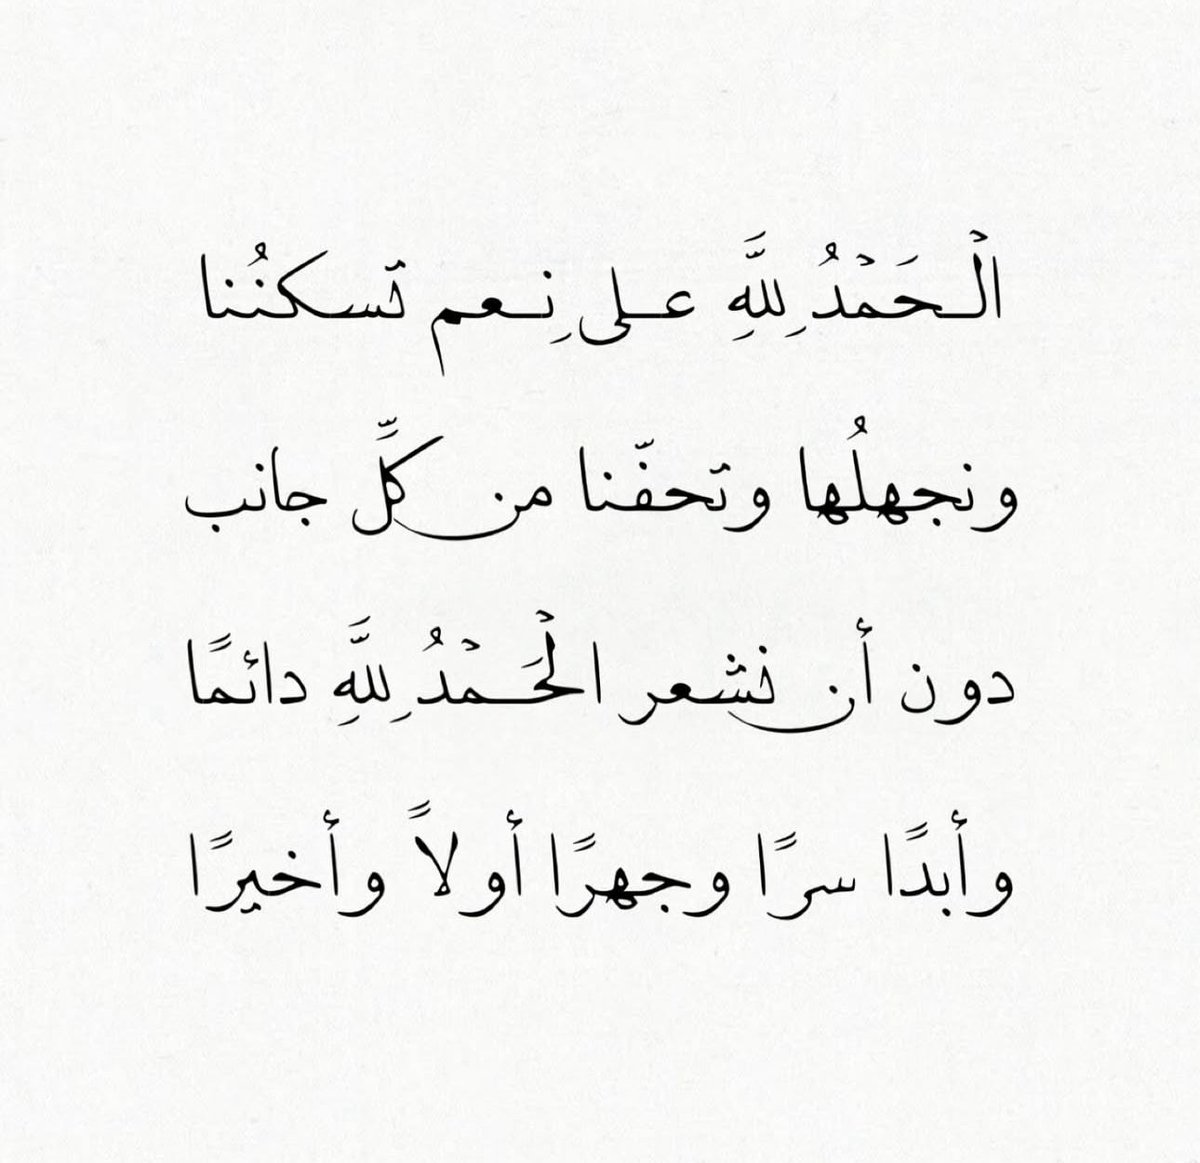 الْـحَمْدُ لِلَّهِ عـلى نِـعم تسكنُنا
ونجهلُها وتحفّنا من كلِّ جانب
دون أن نشعر الْحَـمْدُ لِلَّهِ دائمًا
وأبدًا سرًا وجهرًا أولاً وأخيرًا